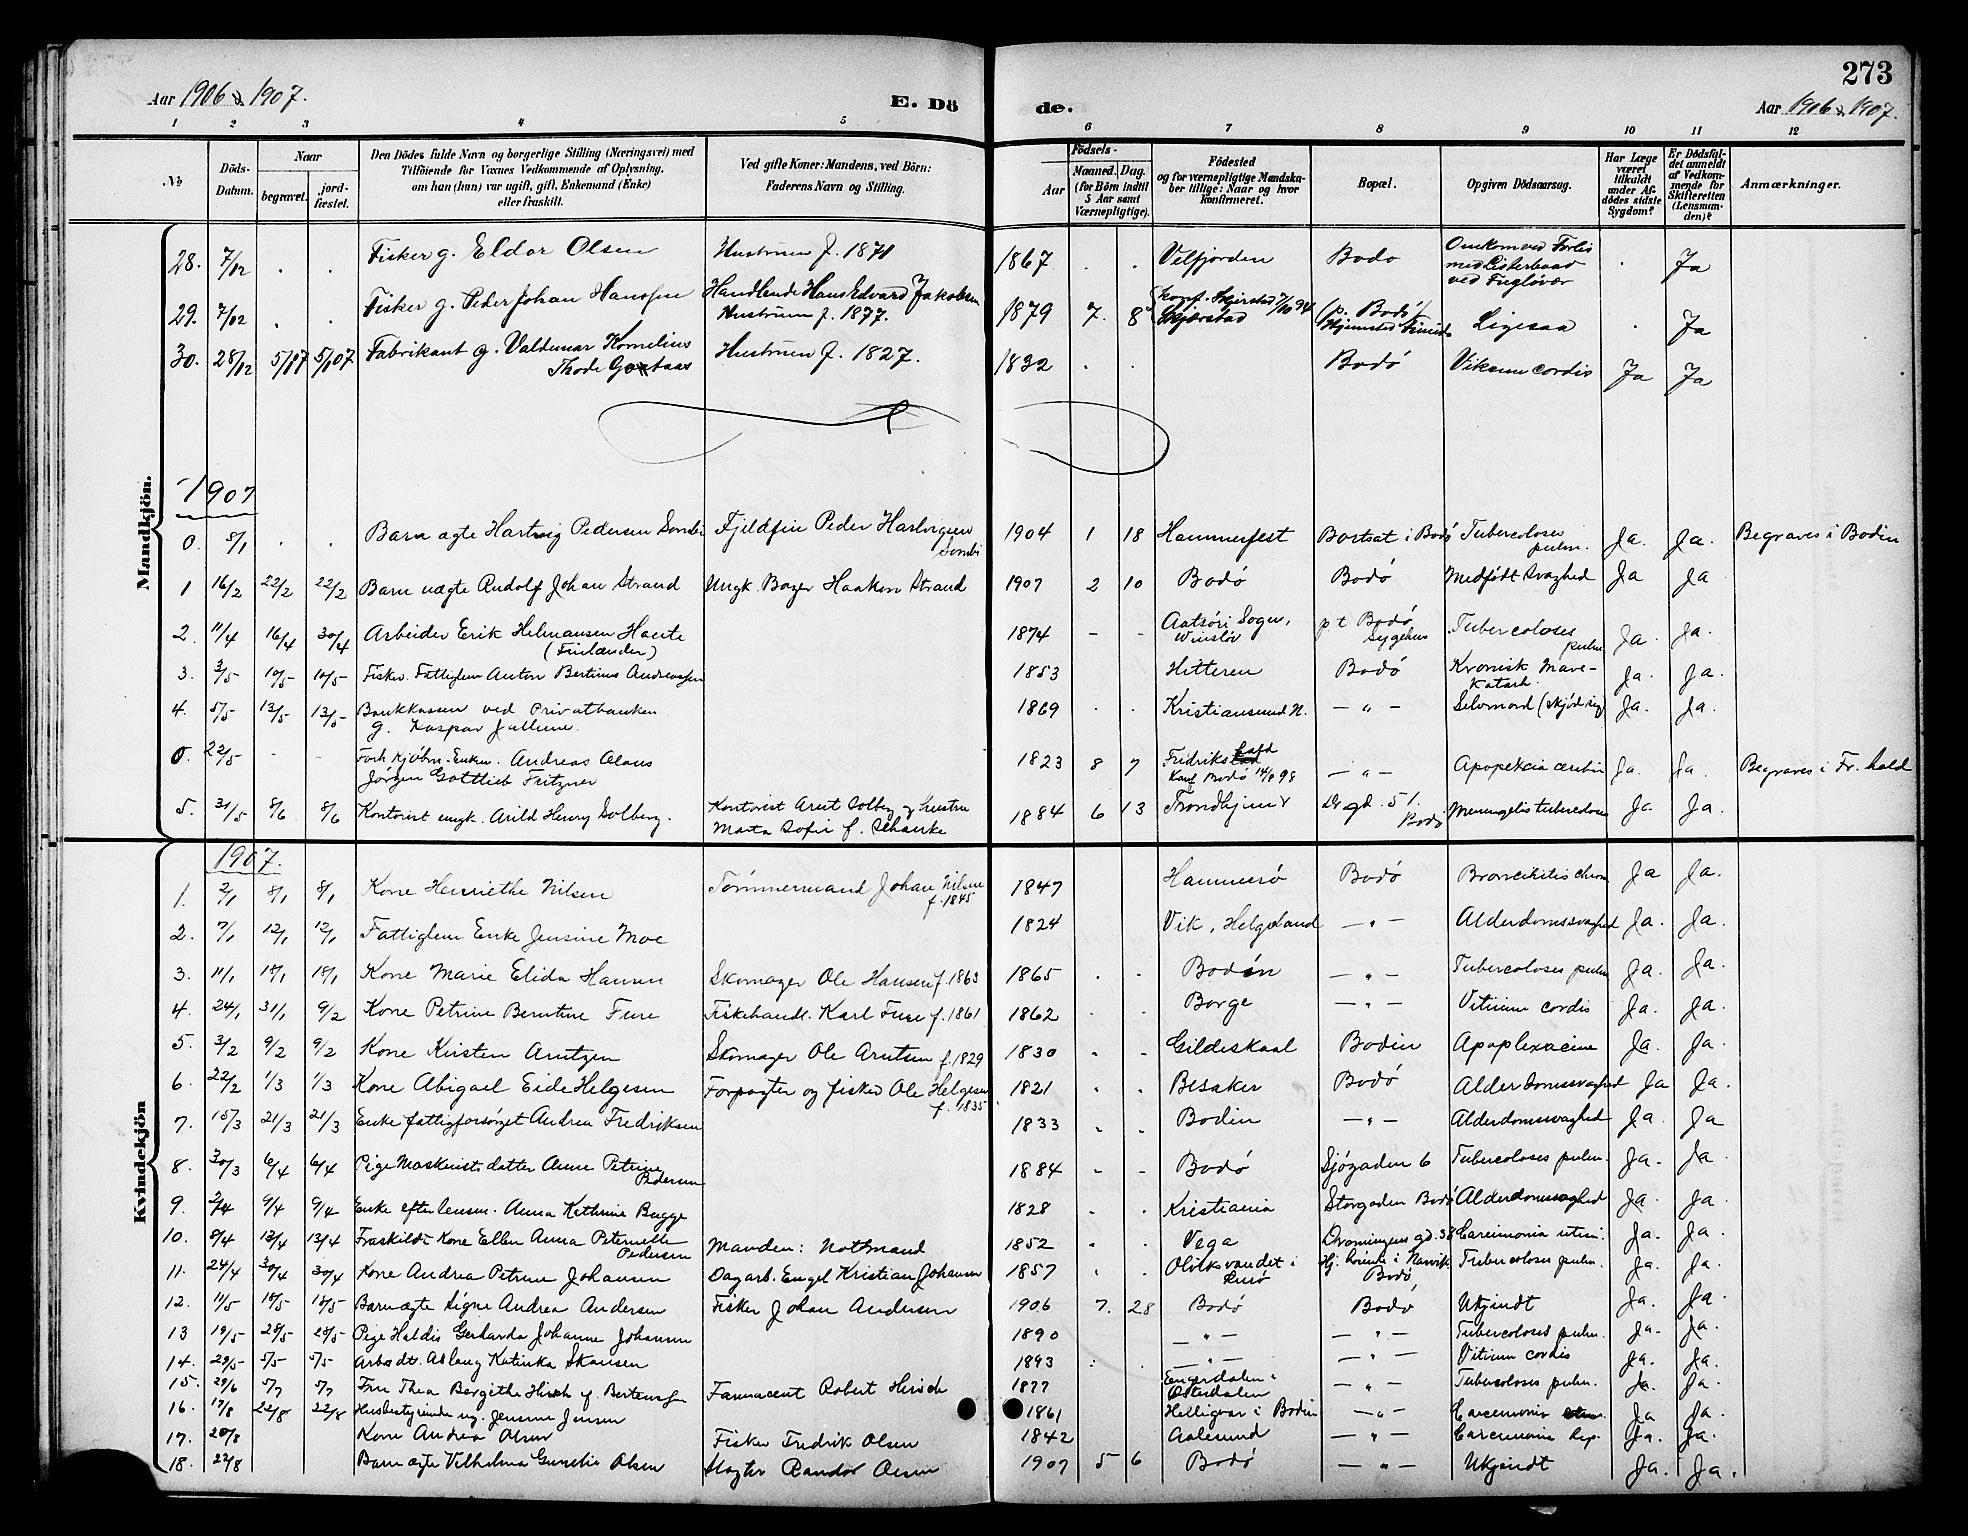 273
Aar 1906 & 1907.
E. Dö
de.
Aar 1906 & 1907.
1 2 3 4 5 6 7 8 9 10 11 12
No
Döds-Datum.
Naar
begravet.
jord-fæstet.
Den Dödes fulde Navn og borgerlige Stilling (Næringsvei) med
Tilföiende for Voxnes Vedkommende af Oplysning,
om han (hun) var ugift, gift, Enkemand (Enke)
eller fraskilt.
Ved gifte Koner: Mandens, ved Börn:
Faderens Navn og Stilling.
Födsels-
Aar
Maaned. Dag.
(for Börn indtil
5 Aar samt
Værnepligtige).
Födested
og for værnepligtige Mandska-
ber tillige: Naar og hvor
konfirmeret.
Bopæl.
Opgiven Dödsaarsag.
Har Læge
været
tilkaldt
under Af-
dödes sidste
Sygdom?
Er Dödsfal-
det anmeldt
af Vedkom-
mende for
Skifteretten
(Lensman-
den)?
Anmærkninger.
Mandkjön.
28. 7/12 . . Fisker g. Eldor Olsen Hustruen f. 1871 1867 . . Velfjorden Bodo Omkom ved Forlis . Ja
med Listerbaad
ved Fugløvær
29. 7/12 . . Fisker g. Peder Johan Hansen Handlende Hans Edvard Jakobsen 1879 7. 8 Konf. Skjerstad 7/10 94 (p. Bodö) Ligesaa . Ja
Hustruen f. 1877. Skjærstad Hjemsted
30. 28/12 5/1 07 5/1 07 Fabrikant g. Valdemar Kornelius Hustruen f. 1827. 1832 . . Bodö Vitium cordis Ja Ja
Thode
1907
0. 8/1 . . Barn ægte Hartvig Pedersen Sombi Fjeldfin Peder 1904 1 18 Hammerfest Bortsat i Bodö Tubercoloses Ja. Ja. Begraves i Bodin
Sombi pulm.
1 16/2 22/2 22/2 Barn uægte Rudolf Johan Strand Ungk. Bager Haakon Strand 1907 2 10 Bodö Bodö Medfödt Svaghed Ja Ja
2. 11/4 16/4 30/4 Arbeider Erik Helmansen 1874 - - Aatsöri Sogn, p t Bodö Tubercoloses Ja. Ja.
(Finlænder) Sygehus pulm
3. 3/5 10/5 10/5 Fisker. Fattiglem Anton Bertinus Andreassen 1853 Hitteren Bodö Kronisk Mave- Ja. Ja.
Katarh.
4. 5/5 13/5 13/5 Bankkasser ved Privatbanken 1869 . . Kristiansund N. — " — Selvmord Ja. Ja.
g. Kaspar
0. 22/5 - - Enkem. Andreas Olaus 1823 8 7 Fredrikshald — " — Apoplexia Ja. Ja. Begraves i Fr. hald
Jørgen Gottlieb Fritzner Konf Bodö 14/8 98
5. 31/5 8/6 8/6 Kontorist ungk. Arild Henry Solberg. Kontorist Arnt Solberg og hustru 1884 6 13 Trondhjem gd. 51. Ja. Ja
Marta Sofie f. Bodö
Kvindekjön
1907.
1. 2/1 8/1 8/1 Kone Henriethe Nilsen Tömmermand Johan Nilsen 1847 Hammerö Bodö Bronchitis chron Ja Ja.
f. 1845
2. 7/1 12/1 12/1 Fattiglem Enke Jensine Moe 1824 Vik, Helgeland — " — Alderdomssvaghed Ja. Ja.
3. 11/1 18/1 18/1 Kone Marie Elida Hansen Skomager Ole Hansen f. 1863 1865 . . Bodin — " — Tubercoloses pulm Ja. Ja.
4. 24/1 31/1 9/2 Kone Petrine Berntine Fure Fiskehandl. Karl Fure f. 1861 1862 . . Borge — " — Vitium cordis Ja. Ja.
5. 3/2 9/2 9/2 Kone Kirsten Arntzen Skomager Ole Arntsen f. 1829 1830 . . Gildeskaal Bodin Ja. Ja.
6. 22/2 1/3 1/3 Kone Abigael Eide Helgesen Forpagter og fisker Ole Helgesen 1821 . . Besaker Bodö Alderdomssvaghed Ja Ja.
f. 1835
7. 15/3 21/3 21/3 Enke fattigforsörget Andrea Fredriksen 1833 . . Bodin — " — Alderdomssvaghed Ja Ja
8. 30/3 6/4 6/4 Pige Maskinist datter Anne Petrine 1884 - - Bodö Sjögaden 6 Tubercoloses pulm. Ja. Ja.
Pedersen
9. 2/4 9/4 9/4 Enke efter lensm. Anna Kathrine Bugge 1828 . . Kristiania Storgaden Bodö Alderdomssvaghed Ja. Ja.
10. 8/4 13/4 13/4 Fraskildt Kone Ellen Anna Peternelle Manden: Notmand 1852 . . Vega Dronningens gd. 38 Carcimonia uteri. Ja. Ja.
Pedersen
11. 24/4 30/4 30/4 Kone Andrea Petrine Johansen Dagarb. Engel Kristian Johansen 1857 . . i i Narvik Tubercoloses pulm. Ja. Ja.
Bodö
12. 11/5 18/5 18/5 Barn ægte Signe Andrea Andersen Fisker Johan Andersen 1906 7. 28 Bodö Bodö Ukjendt Ja. Ja.
13 19/5 28/5 28/5 Pige Haldis Gerharda Johanne Johansen 1890 — " — — " — Tubercoloses pulm. Ja. Ja.
14. 29/5 5/5 5/5 Arbs dt. Aslaug Katinka Skansen 1893 . — " — — " — Vitium cordis Ja. Ja.
15. 29/6 5/7 5/7 Fru Thea Bergithe Hirsch f. Berteussen Farmacent Robert Hirsch 1877 Engerdalen i — " — Tubercoloses pulm. Ja. Ja.
Österdalen
16. 17/8 22/8 22/8 Husbestyrinde ug. Jensine Jensen 1861 Helligvær i Bodin — " — Carcemonia Ja Ja.
17. 20/8 Kone Andrea Olsen Fisker Fredrik Olsen 1842 Aalesund — " — Carcemonia hep. Ja. Ja.
18. 22/8 Barn ægte Vilhelma Olsen Slagter Randor Olsen 1907 5 6 Bodö — " — Ukjendt Ja. Ja.